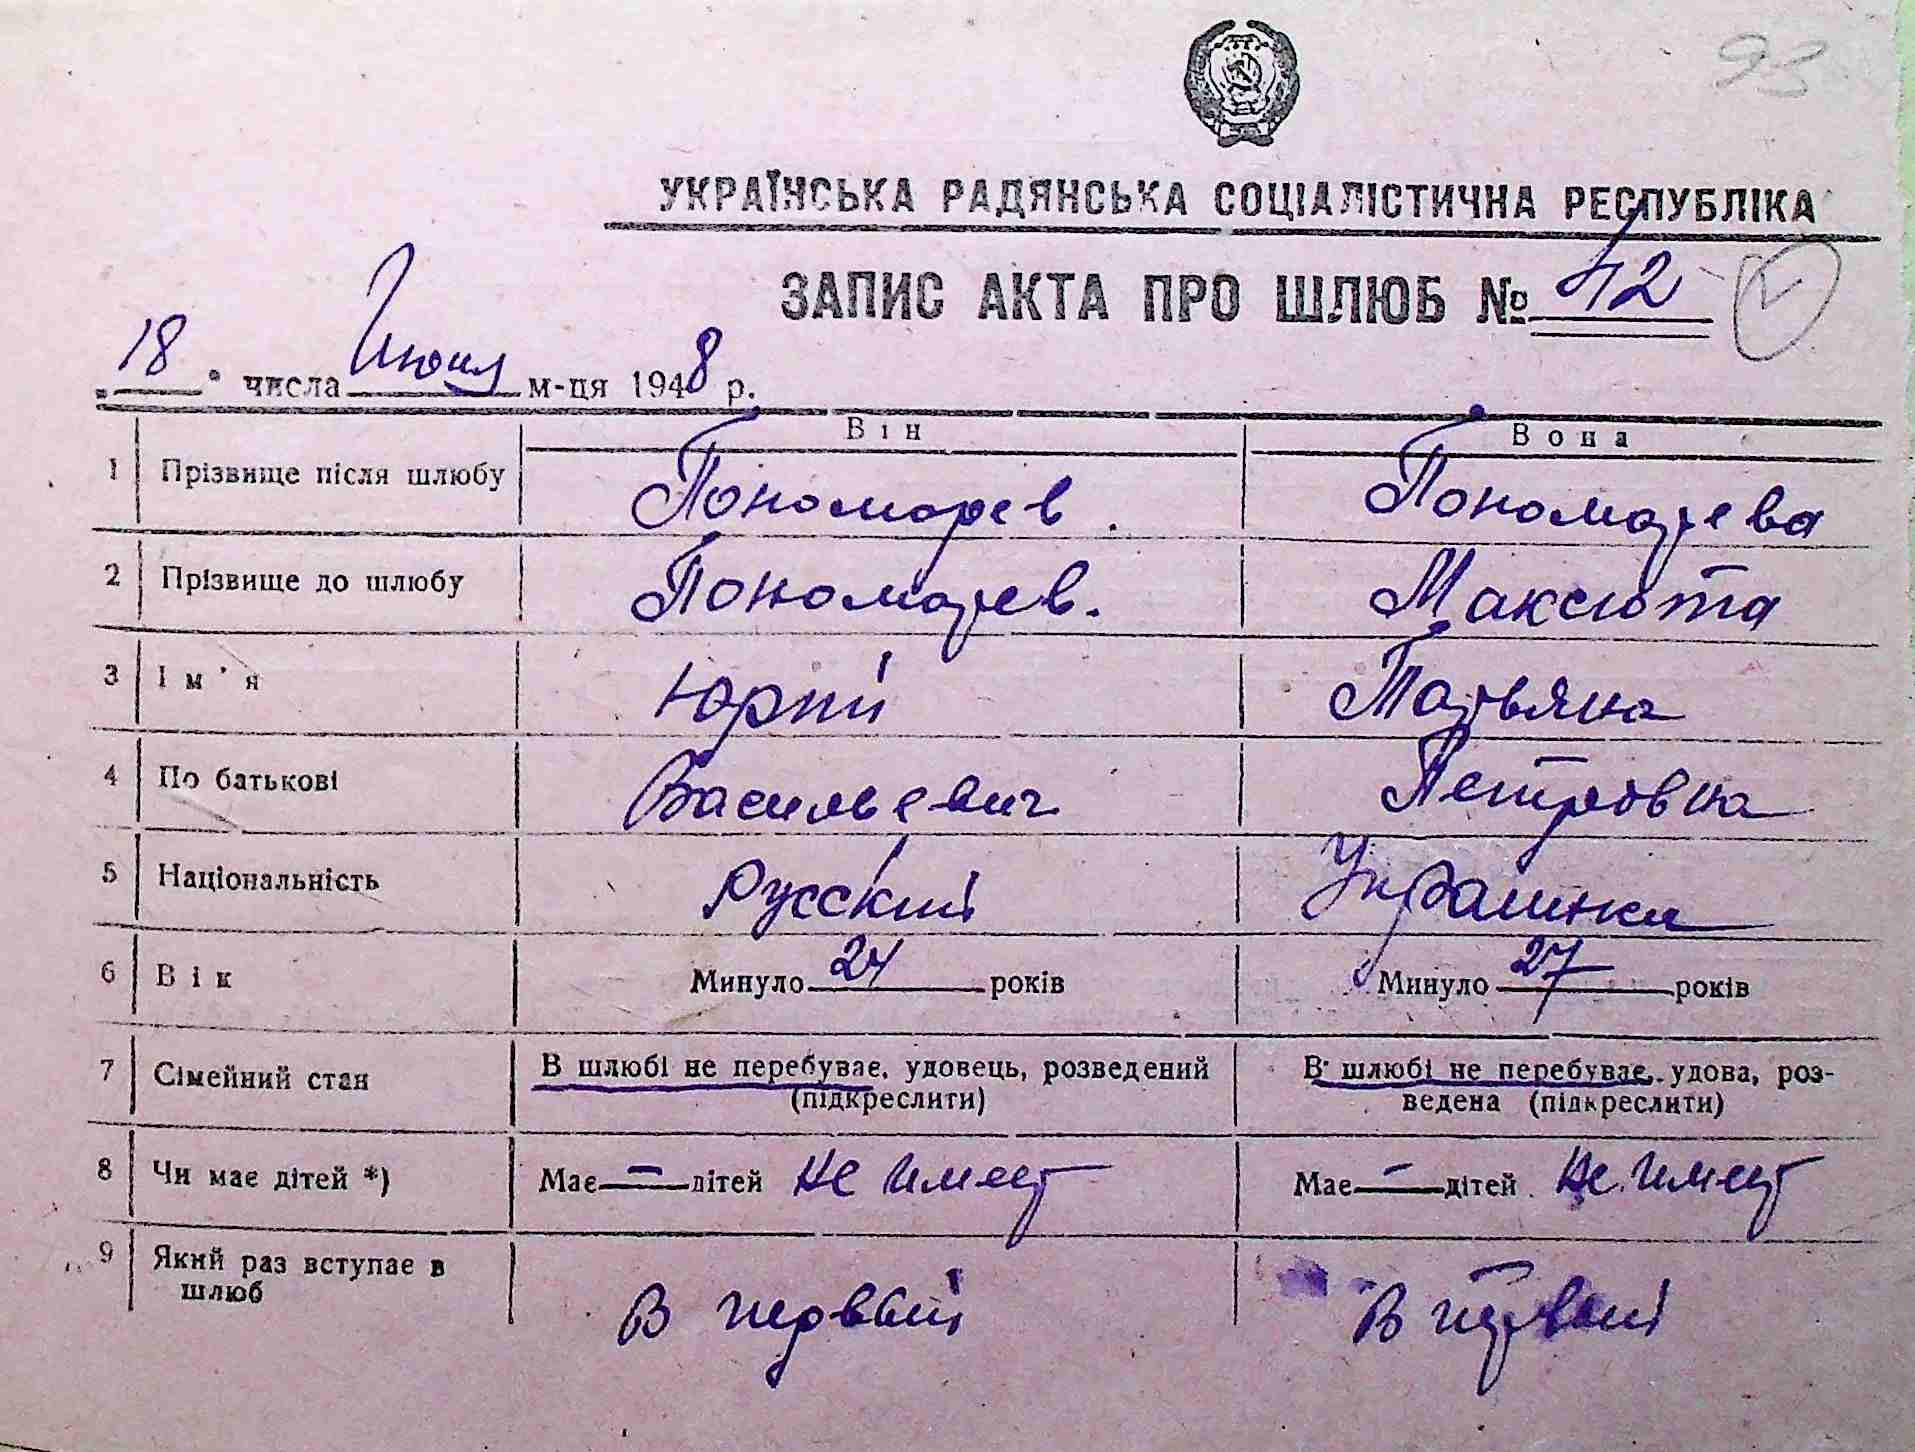 93
УКРАЇНСЬКА РАДЯНСЬКА СОЦІАЛІСТИЧНА РЕСПУБЛІКА
ЗАПИС АКТА ПРО ШЛЮБ № 42
18 числа м-ця 1948 р.
Він Вона
1 Прізвище після шлюбу Пономарев. Пономарева
2 Прізвище до шлюбу Пономарев. Максюта
3 Ім'я Юрий Татьяна
4 По батькові Васильевич Петровна
5 Національність Русский Украинка
6 Вік Минуло 24 років Минуло 27 років
7 Сімейний стан В шлюбі не перебуває, удовець, розведений (підкреслити) В шлюбі не перебуває, удова, роз-
ведена (підкреслити)
8 Чи має дітей *) Має — дітей не имеет Має — дітей не имеет
9 Який раз вступає в
шлюб В первый В первый